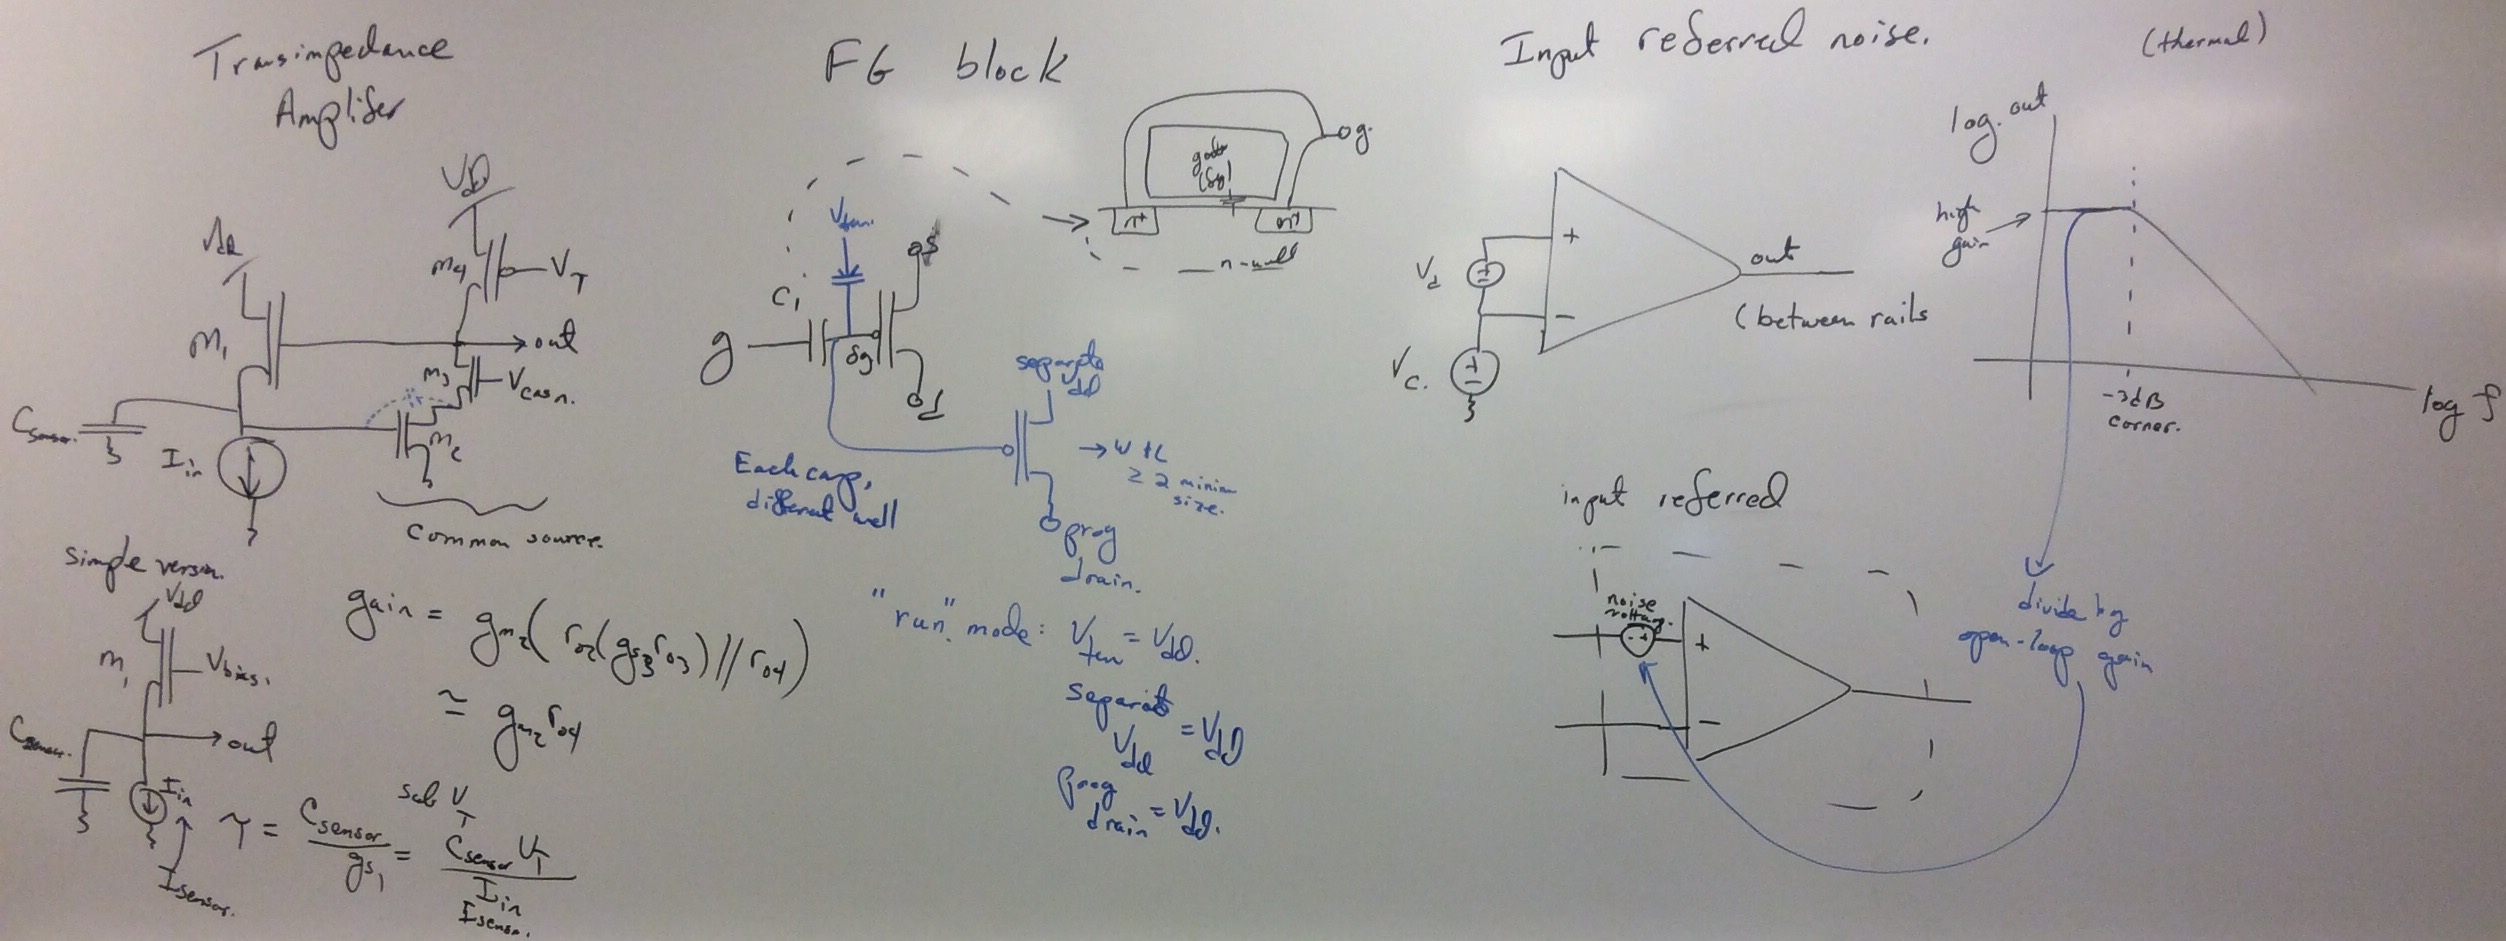 Transimpedance
Amplifer
Vdd
M1
Vdd
M4
VT
out
M3
Vcasn.
Csensor.
Iin
M2
Common source.
Simple version.
Vdd
M1
Vbias.
Csensor.
out
Iin
Isensor.
gain = gm2( ro2(gs3ro3) // ro4)
≃ gm2 ro4
τ = Csensor / gs1 = Csensor UT / Iin
sub VT
Isensor.
FG block
g.
gate
(fg)
n+
n+
n-well
Vtun.
C1
s
g
fg
d
separate
dd
→ W + L
≥ 2 minim
size.
prog
drain.
Each cap,
different well
"run" mode: Vtun = Vdd.
separate
Vdd = Vdd
prog
drain = Vdd.
Input referred noise.
(thermal)
Vd
Vc.
+
-
out
(between rails
log. out
high
gain
-3dB
corner.
log f
divide by
open-loop gain
input referred
noise
- +
+
-